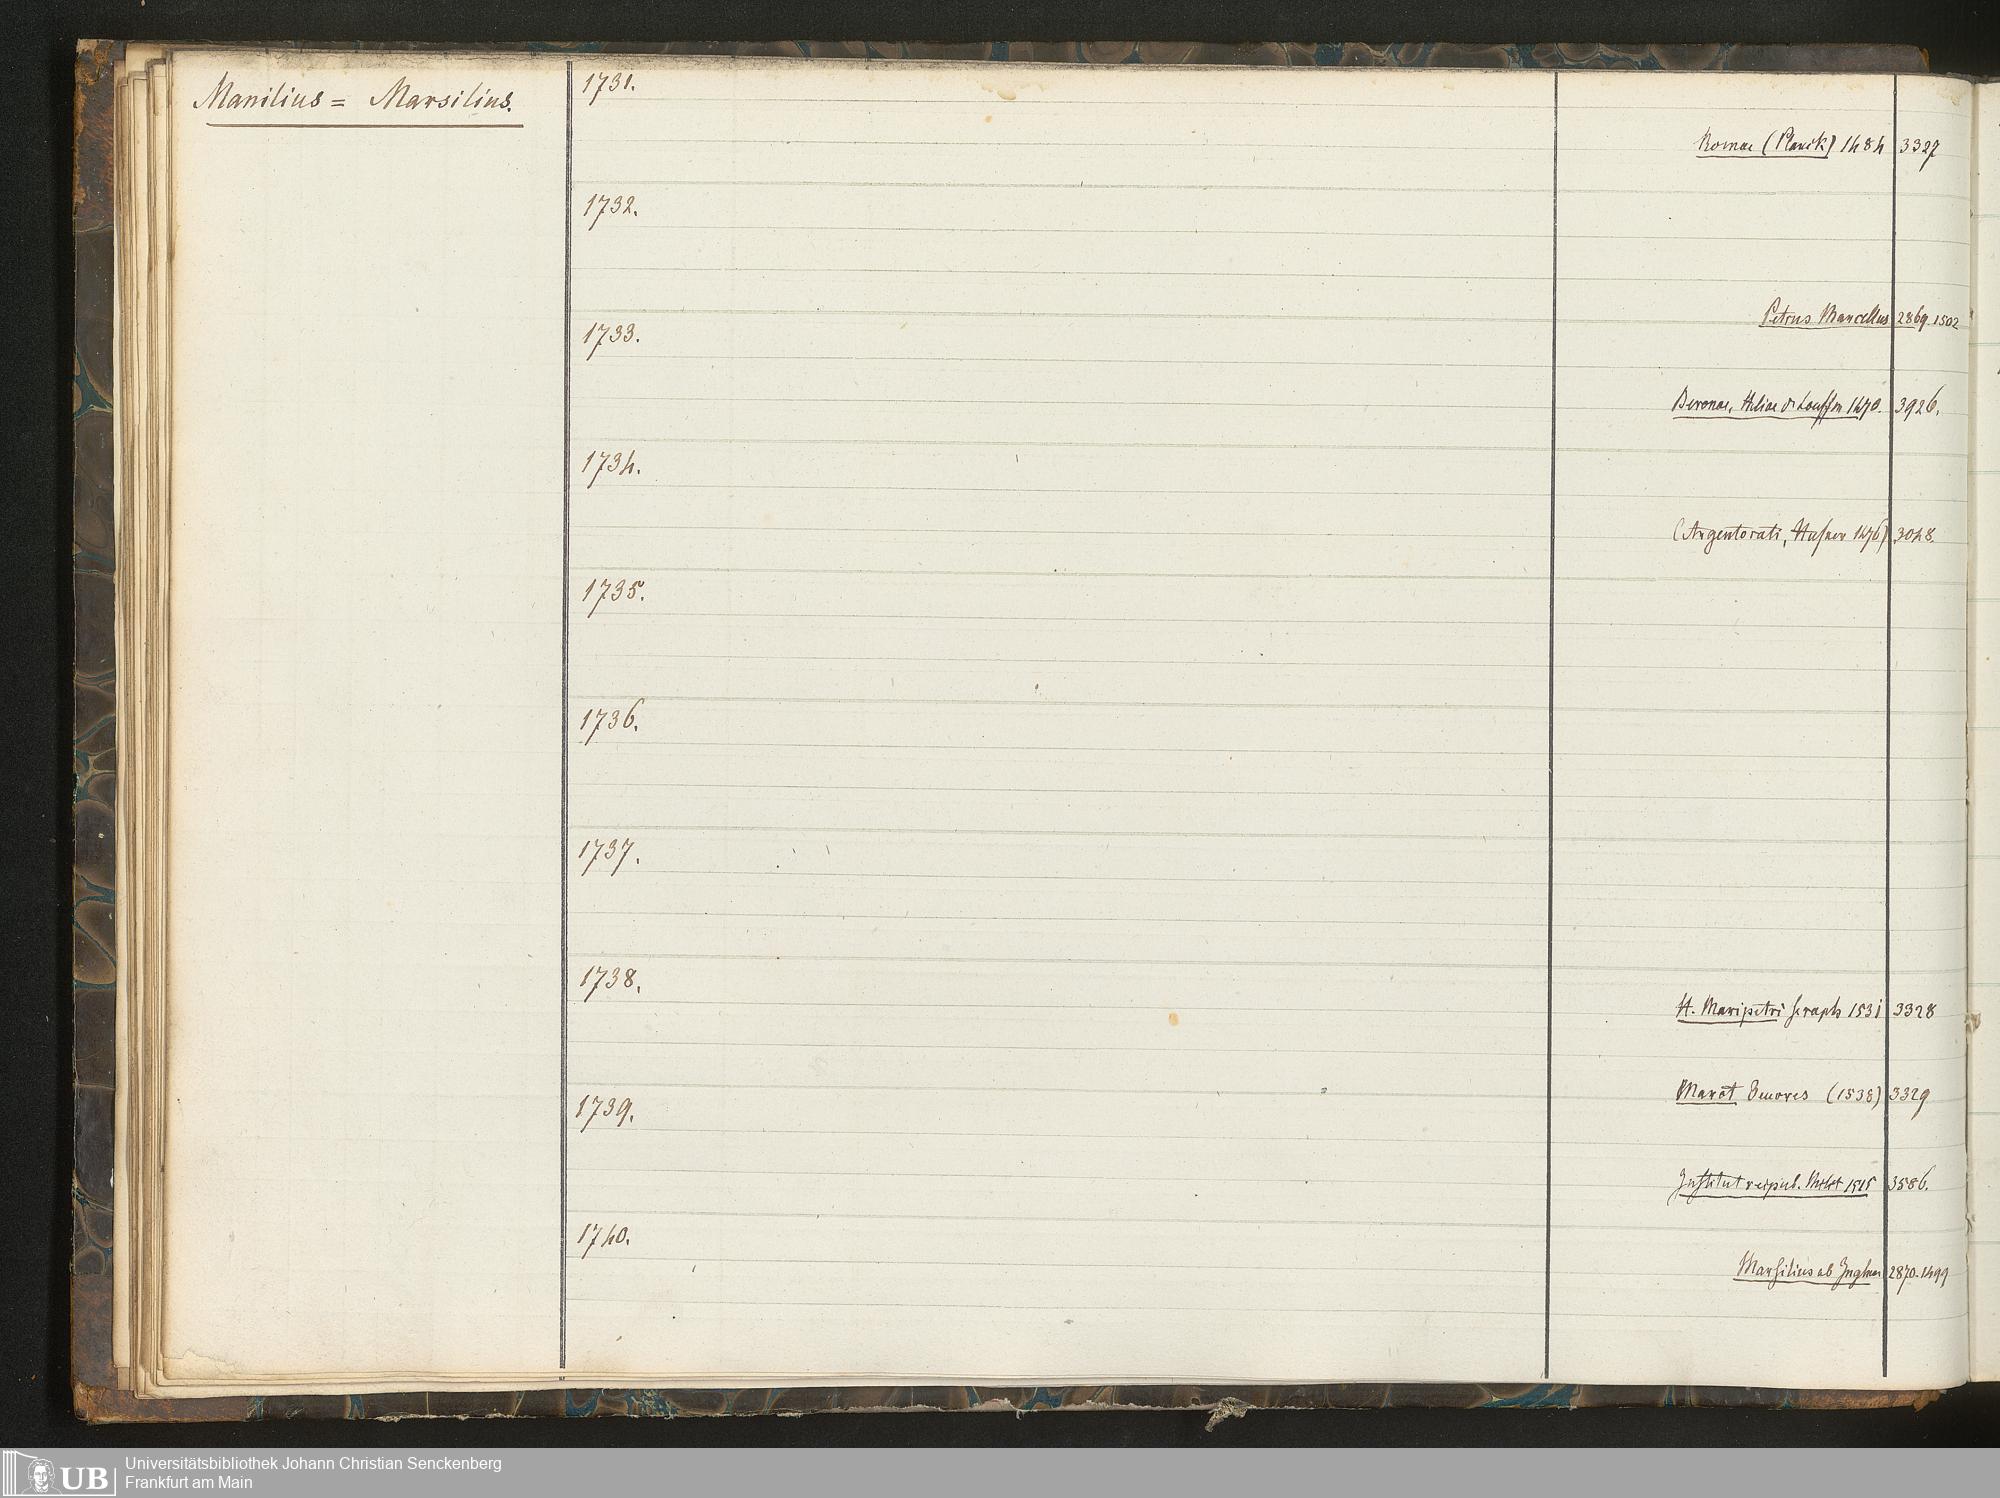 Manilius = Marsilius.
1731.
Romae (Planck) 1484 3327
1732.
Petrus Marcellus 2869. 1502
1733.
Beronae, Heliae de Louffen 1470. 3926.
1734.
(Argentorati, Husner 1476) 3048.
1735.
1736.
1737.
1738.
H. Maripetri seraph 1531 3328
1739.
Marot Oeuvres (1538) 3329
Institut reipub. 1515 3586.
1740.
Marsilius ab Inghen 2870. 1499
UB
Universitätsbibliothek Johann Christian Senckenberg
Frankfurt am Main